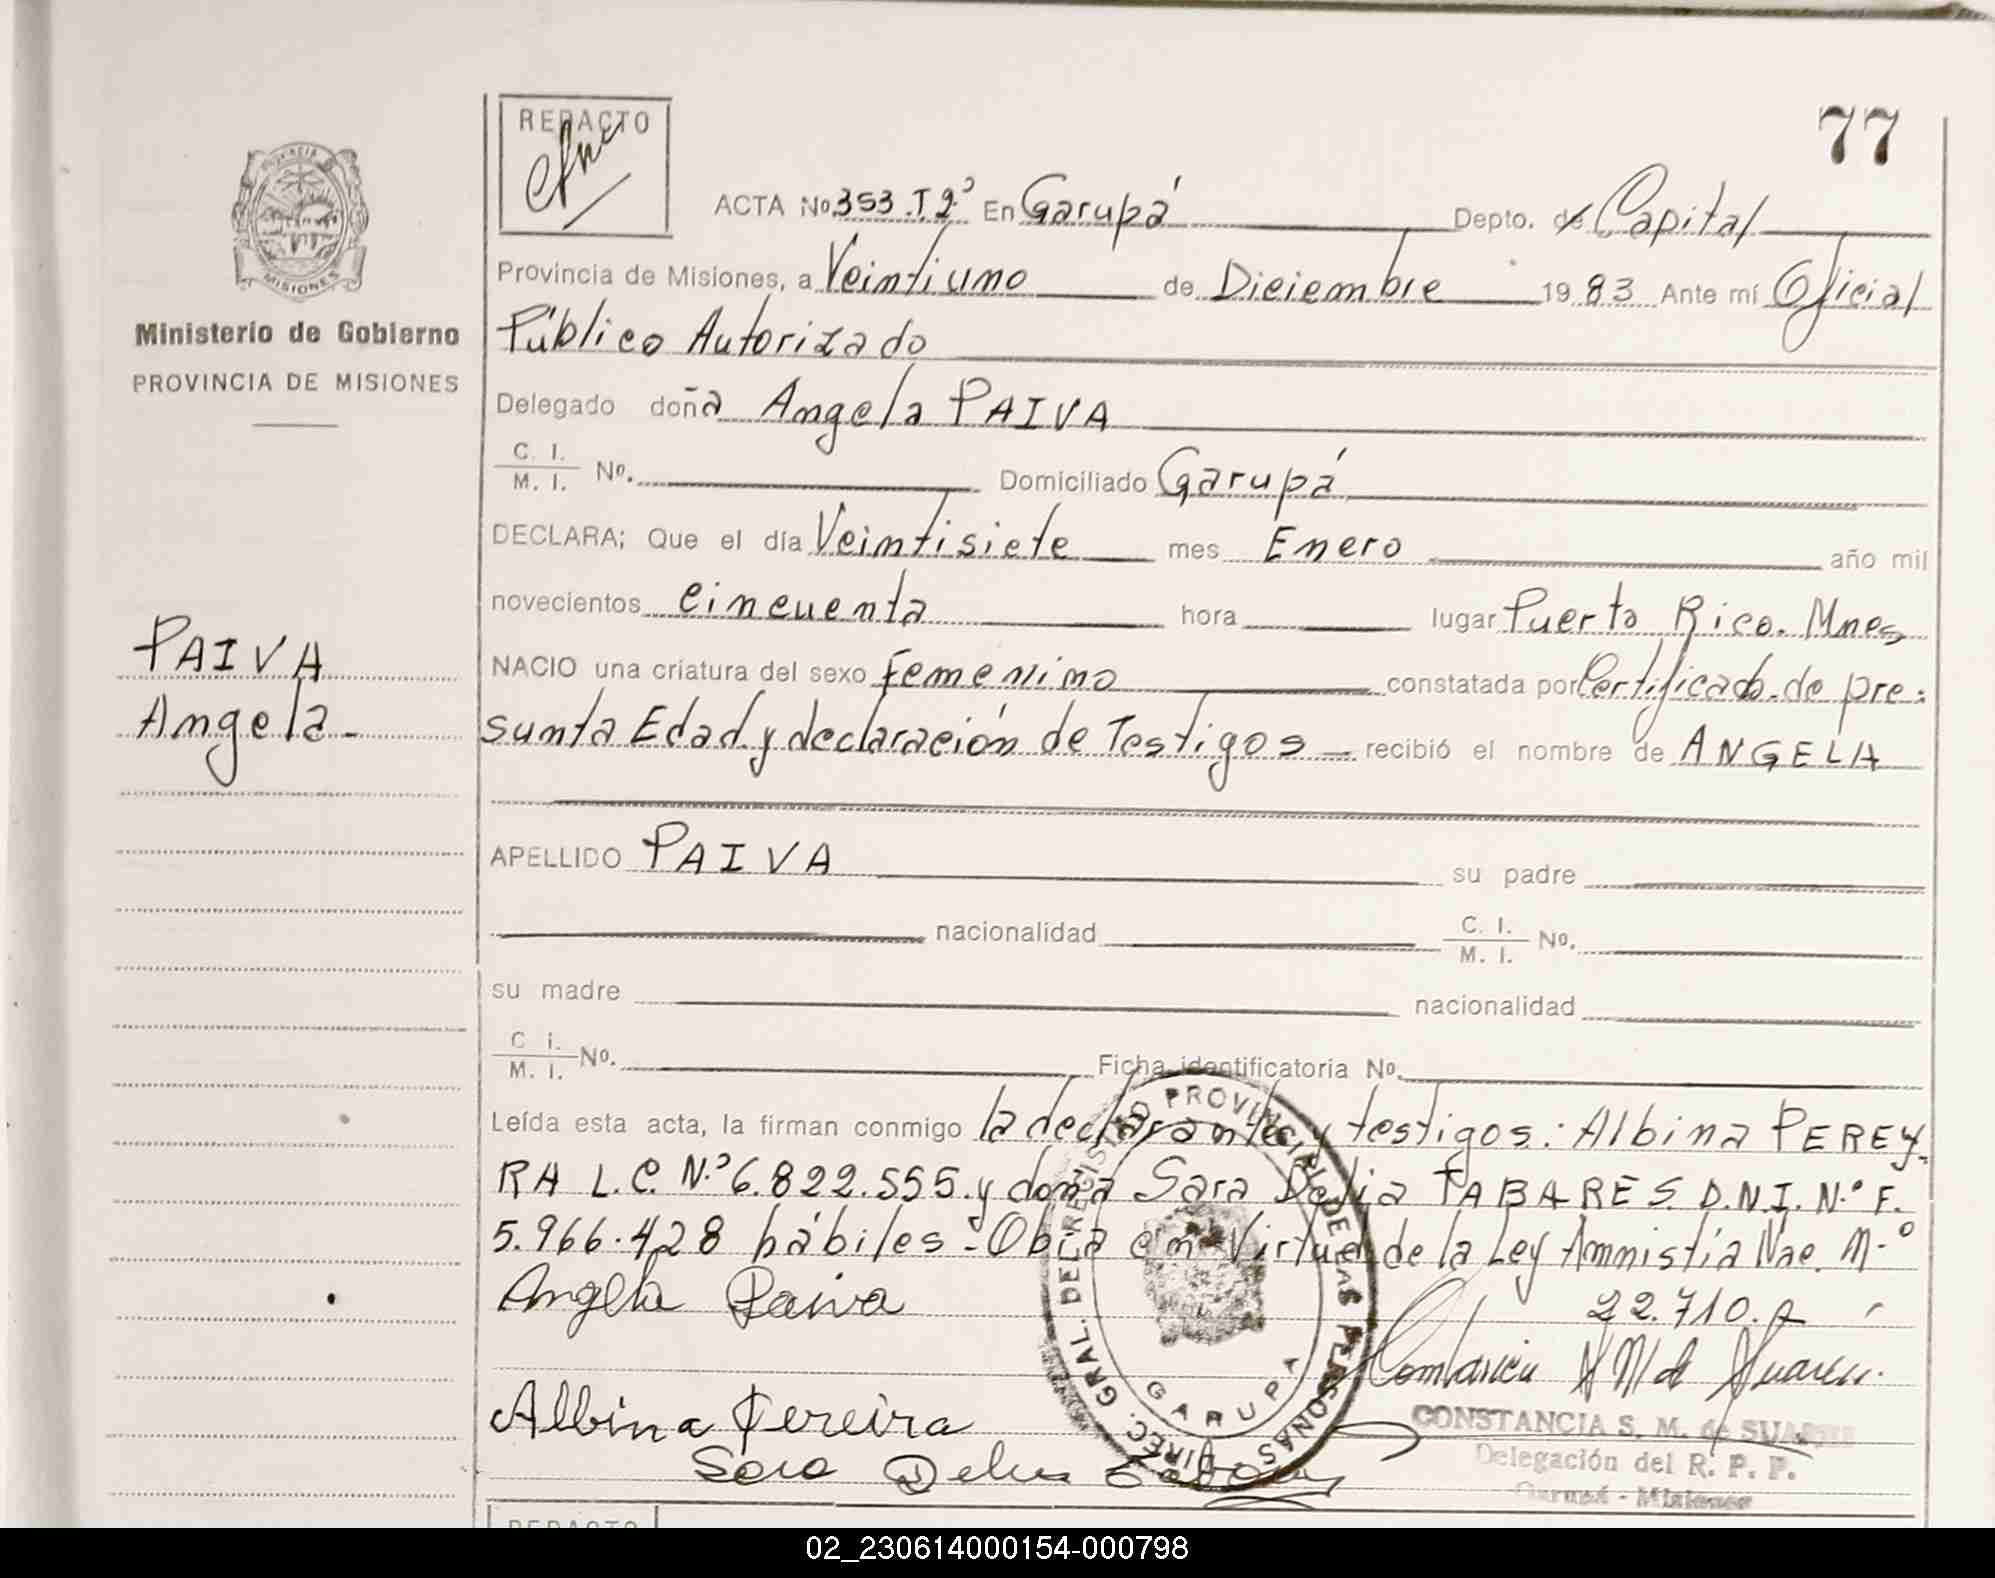 77
REDACTO
ACTA Nº 353.T2º En Garupá Depto. de Capital
PROVINCIA
MISIONES
Provincia de Misiones, a Veintiuno de Diciembre 1983 Ante mí Oficial
Ministerio de Gobierno
PROVINCIA DE MISIONES
Público Autorizado
Delegado doña Angela PAIVA
C. I.
M. I. Nº. Domiciliado Garupá
DECLARA; Que el día Veintisiete mes Enero año mil
novecientos cincuenta hora lugar Puerto Rico. Mnes
PAIVA
Angela-
NACIO una criatura del sexo Femenino constatada por Certificado de pre-
sunta Edad y declaración de Testigos recibió el nombre de ANGELA
APELLIDO PAIVA su padre
nacionalidad C. I.
M. I. Nº.
su madre nacionalidad
C i.
M. I. Nº. Ficha identificatoria Nº.
Leída esta acta, la firman conmigo la declarante y testigos: Albina PEREY-
RA L.C. N.º 6.822.555. y doña Sara Delia TABARES D.N.I. N.º F.
5.966.428 hábiles - Obra en Virtud de la Ley Amnistía Nac. n.º
22.710.
Angela Paiva
Albina Pereira
Sara Delia
DIREC. GRAL. DEL REGISTRO PROVINCIAL DE LAS PERSONAS
GARUPA
CONSTANCIA S. M. de SUAREZ
Delegación del R. P. P.
Garupá - Misiones
REDACTO
02_230614000154-000798